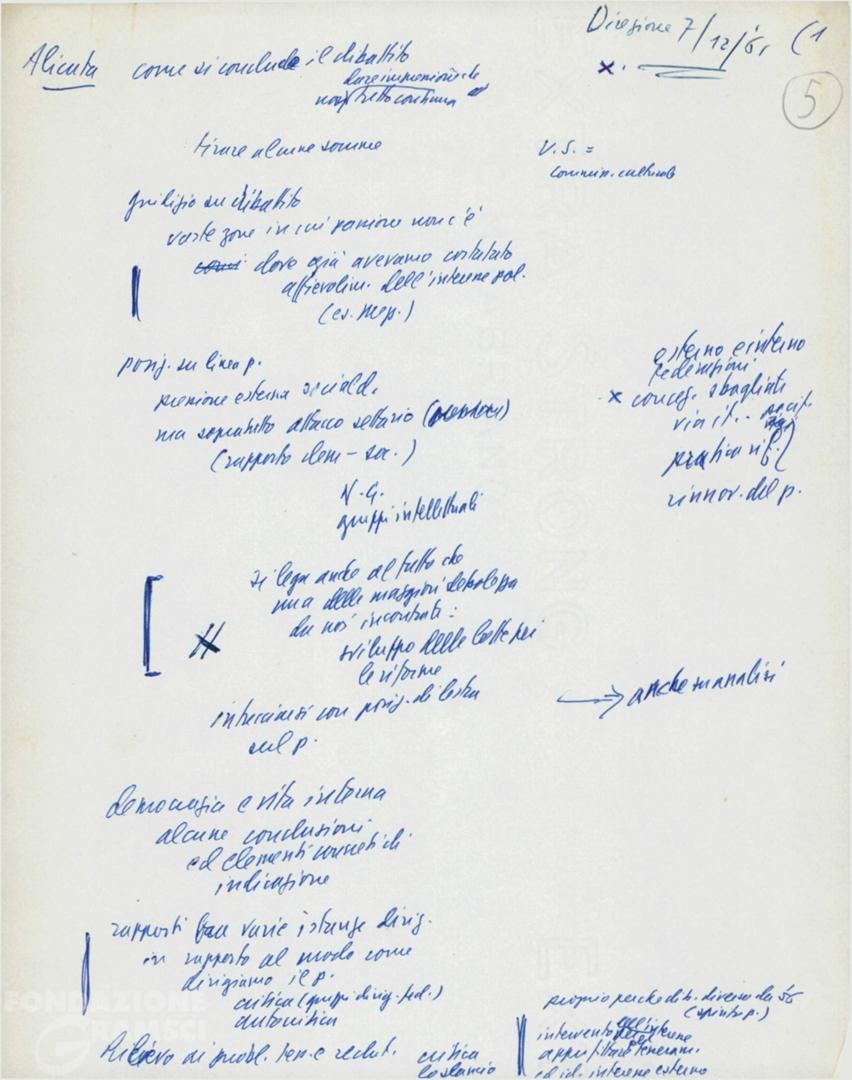 Direzione 7/12/61 (1
5
Alicata come si conclude il dibattito
dare impressione che
non tutto continua
tirare alcune somme
V.S. =
commis. culturale
giudizio su dibattito
vaste zone in cui passione non c'è
dove già avevamo costatato
affievolim. dell'interesse pol.
(es. mep.)
posiz. su linea p.
pressione esterna sociald.
ma sopratutto attacco settario
(rapporto dem-soc.)
N.G.
gruppi intellettuali
esterno e interno
federazioni
x concez. sbagliate
via it.
pratica rif.
rinnov. del p.
si lega anche al fatto che
una delle maggiori debolezze
da noi incontrate:
sviluppo delle lotte per
le riforme
intrecciarsi con posiz. di destra
sul p.
→ anche su analisi
democrazia e vita interna
alcune conclusioni
ed elementi concreti di
indicazione
rapporti tra varie istanze dirig.
in rapporto al modo come
dirigiamo il p.
critica (gruppi dirig. fed.)
autocritica
Rilievo di probl. tess. e reclut.
critica
lo slancio
proprio perché dib. diverso da 56
(spinta p.)
intervento
ed id. interne esterno
FONDAZIONE
GRAMSCI